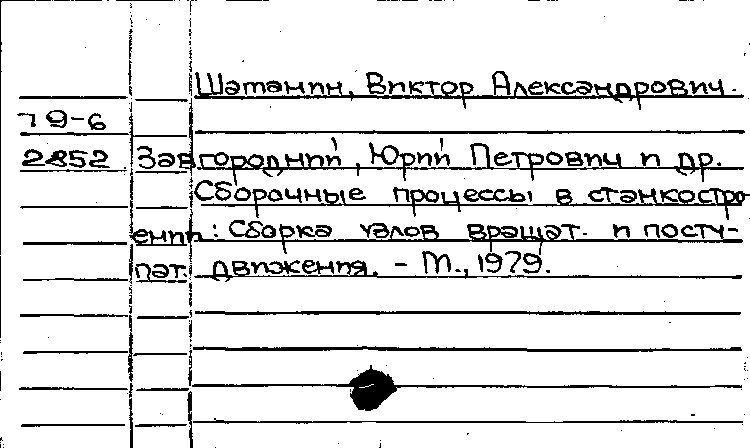 Шатанин, Виктор Александрович.
79-6
2852 Завгородний, Юрий Петрович и др.
Сборочные процессы в станкостро-
ении: Сборка узлов вращат. и посту-
пат. движения. - М., 1979.